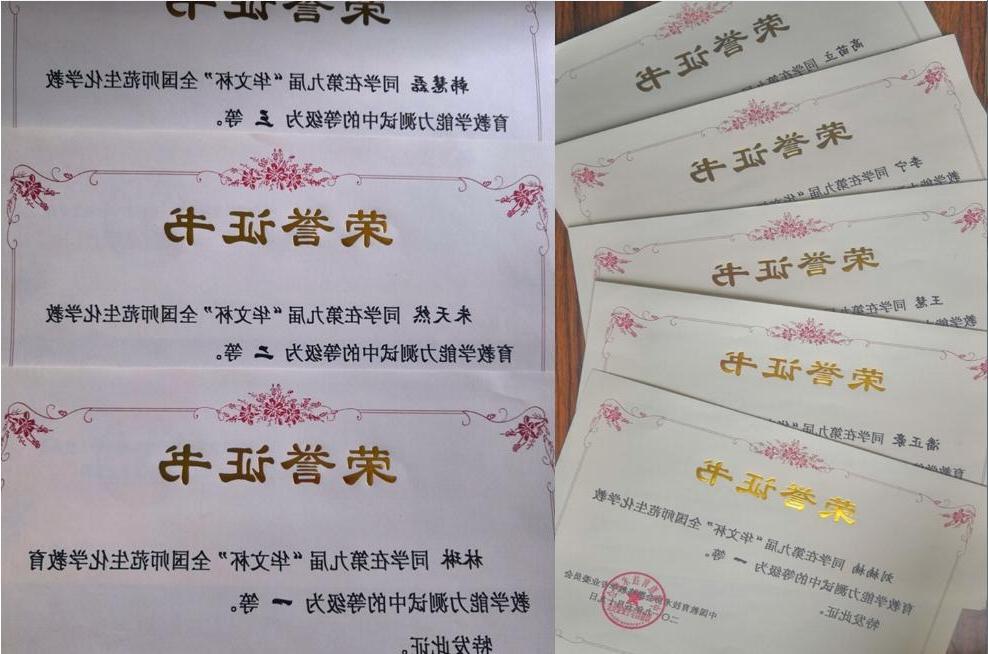 荣誉证书
韩慧磊 同学在第九届“华文杯”全国师范生化学教
育教学能力测试中的等级为 三 等。
荣誉证书
朱天然 同学在第九届“华文杯”全国师范生化学教
育教学能力测试中的等级为 二 等。
荣誉证书
林琳 同学在第九届“华文杯”全国师范生化学教育
教学能力测试中的等级为 一 等。
特发此证。
荣誉证书
高苗立 同学在第九
荣誉证书
李宁 同学在第九届“华文
教学能
荣誉证书
王慧 同学在第九届
教学能力
荣誉证书
潘正豪 同学在第九届“华
育教学
荣誉证书
刘楠楠 同学在第九届“华文杯”全国师范生化学教
育教学能力测试中的等级为 一 等。
特发此证。